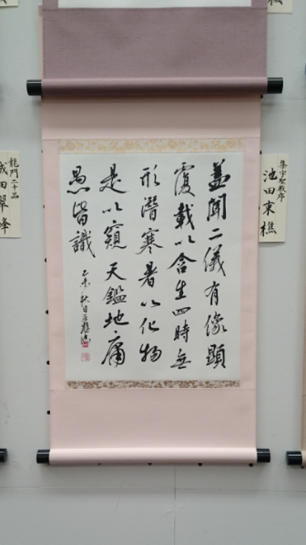 集字聖教序
池田東樵
蓋聞二儀有像顯
覆載以含生四時無
形潛寒暑以化物
是以窺天鑑地庸
愚皆識
乙未秋日
龍門二十品
成田翠峰